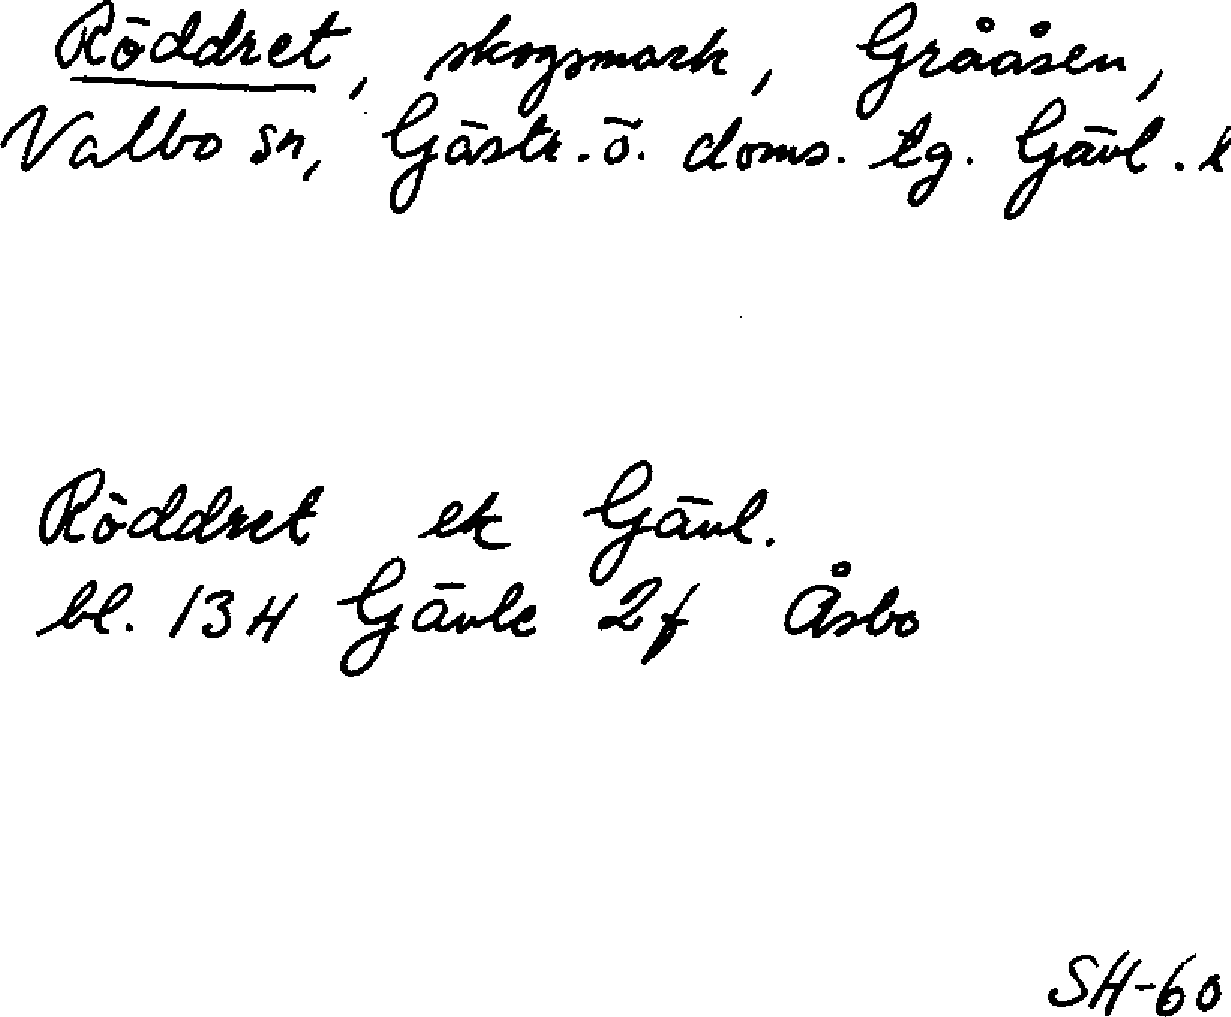 Röddret, skogsmark, Grååsen,
Valbo sn, Gästr. ö. doms. tg. Gävl. l
Röddret ek Gävl.
bl. 13H Gävle 2f Åsbo
SH-60